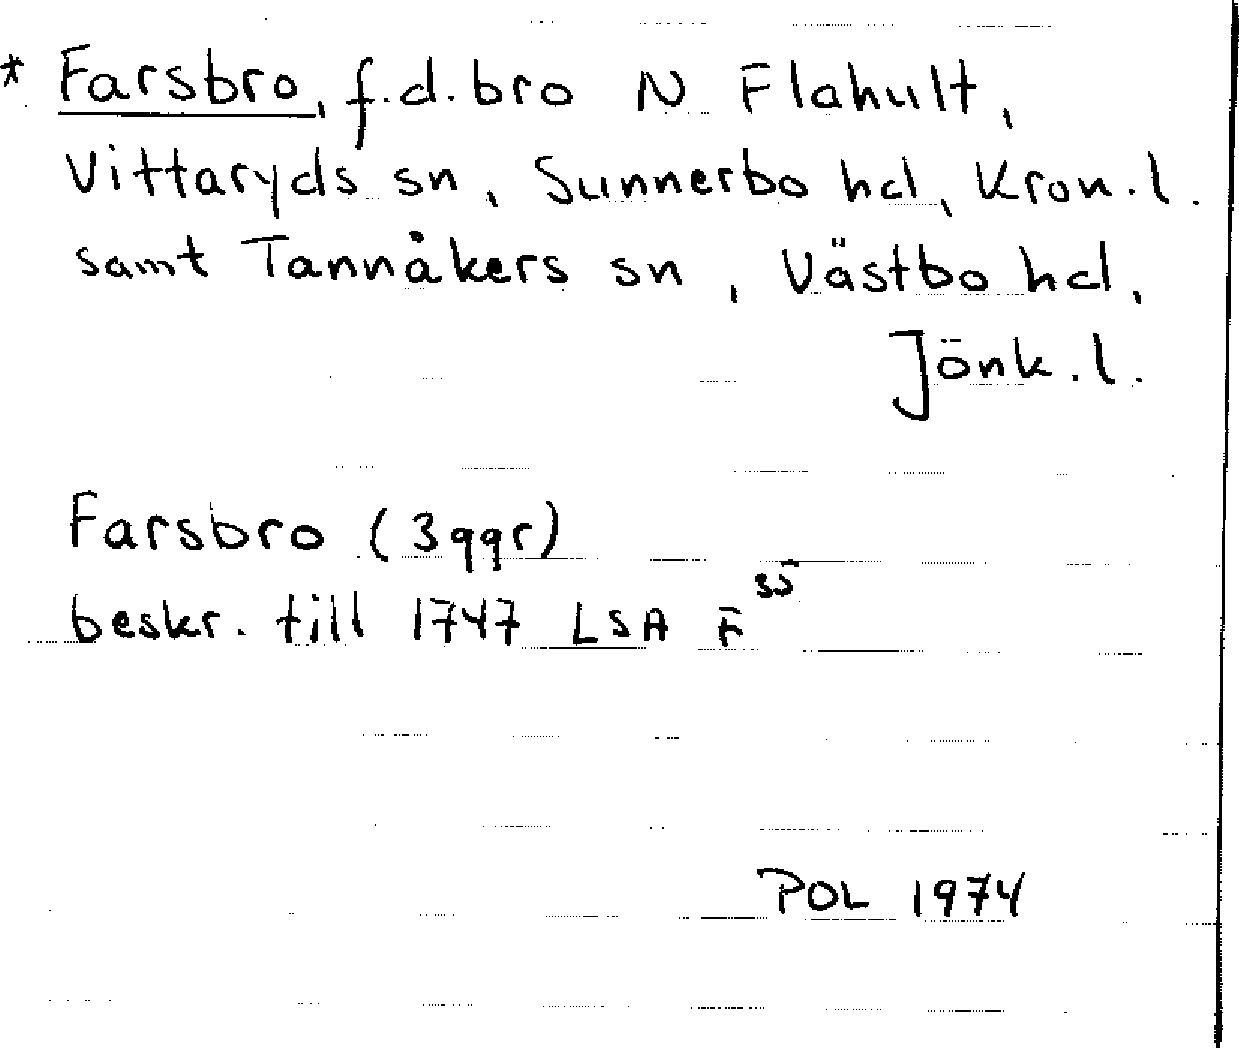 * Farsbro, f.d. bro N Flahult,
Vittaryds sn, Sunnerbo hd, Kron.l.
samt Tannåkers sn, Västbo hd,
Jönk.l.
Farsbro (3 ggr)
beskr. till 1747 LSA F
POL 1974